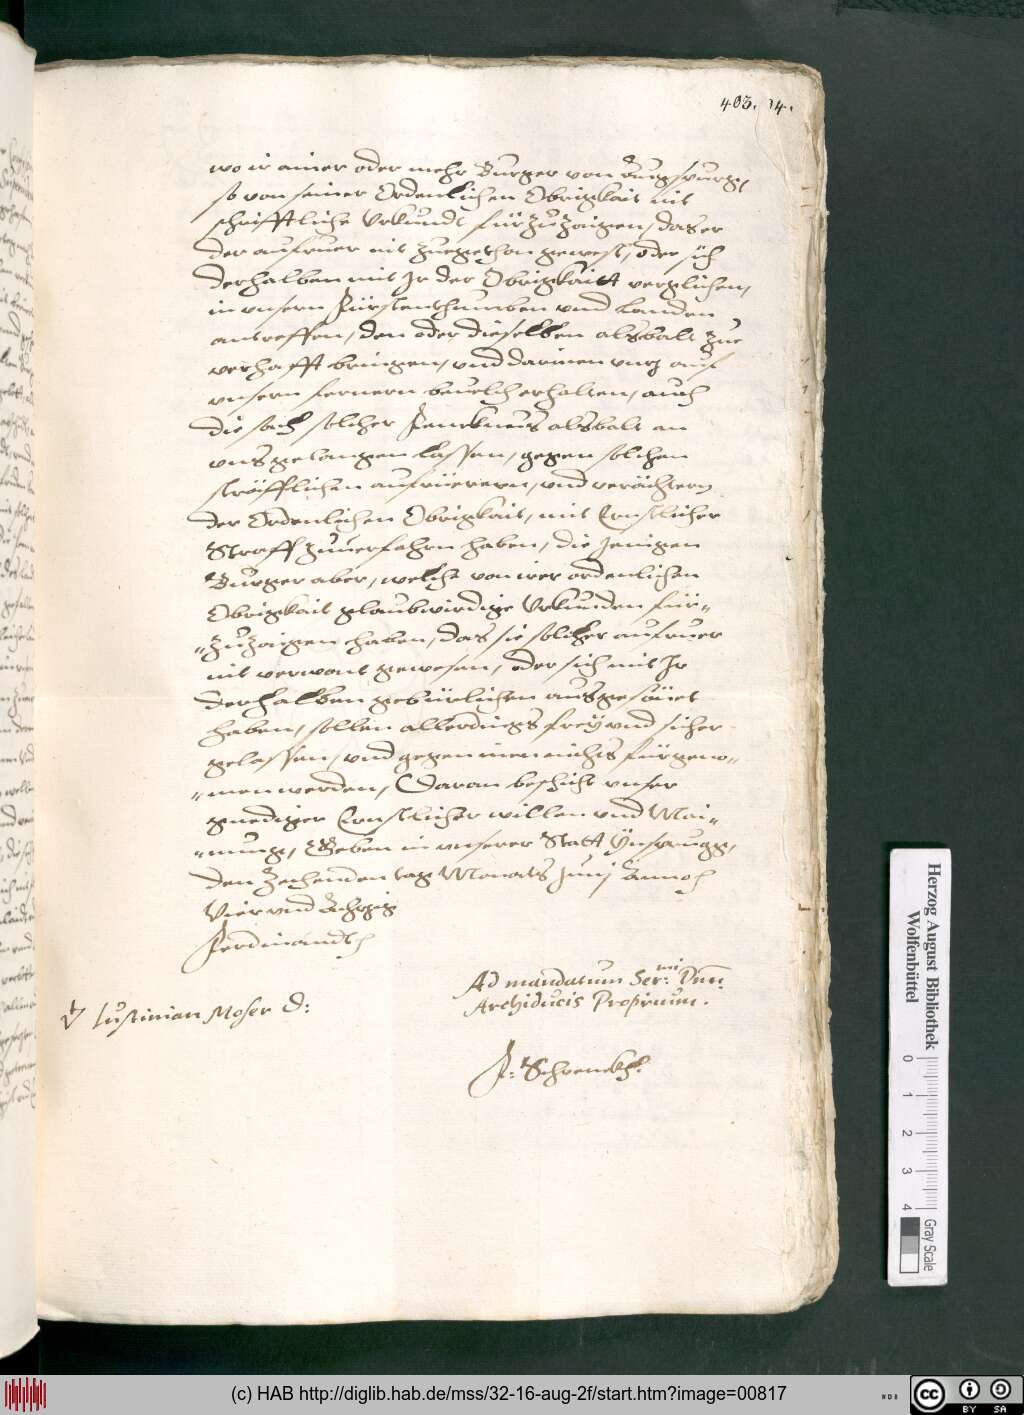 403. 14.
wo ir ainer oder mehr Burger von Augspurg,
so von seiner Ordenlichen Obrigkait nit
schrifftliche Vrkundt fürzuzaigen, das er
der aufruer nit zuegethon gewest, oder sich
derhalben mit Ir der Obrigkaitt verglichen,
in vnsern Fürstenthumben vnd Landen
antreffen, den oder dieselben alsbalt zue
verhafft bringen, vnd darinen vnz auf
vnsern fernern beuelch erhalten, auch
die sach solcher Fencknus alsbalt an
vns gelangen lassen, gegen solchen
sträfflichen aufrüerern, vnd verächtern
der Ordenlichen Obrigkait, mit Ernstlicher
Straff zuuerfahrn haben, die Jenigen
Burger aber, welche von irer ordenlichen
Obrigkait glaubwirdige Vrkunden für=
=zuzaigen haben, das sie solcher aufruer
nit verwont gewesen, oder sich mit Ir
derhalben gebürlichen ausgesönet
haben, sollen allerdings frey vnd sicher
gelassen, vnd gegen inen nichts fürgeno=
=men werden, Daran beschicht vnser
gnediger Ernstlicher willen vnd Mai=
=nung, Geben in vnserer Statt Ynsprugg,
den Zechenden tag Monats Junij Anno
Vier vnd Achzig
Ferdinandt
Ad mandatum Ser:mi Dnn:
Archiducis Proprium.
Vt Iustinian Moser D:
J: Schrenckh.
Herzog August Bibliothek
Wolfenbüttel
0 1 2 3 4
Gray Scale
(c) HAB http://diglib.hab.de/mss/32-16-aug-2f/start.htm?image=00817
WDB
cc BY SA